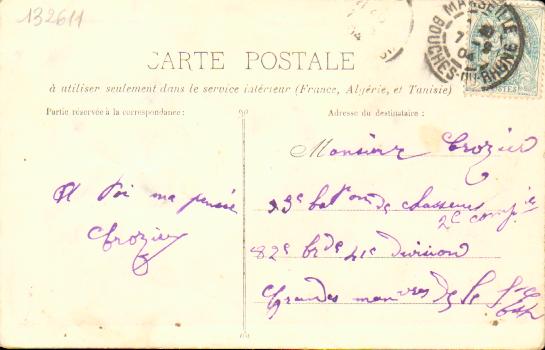 132611
MARSEILLE
BOUCHES-DU-RHONE
POSTES
CARTE POSTALE
à utiliser seulement dans le service intérieur (France, Algérie, et Tunisie)
Partie réservée à la correspondance:
Adresse du destinataire:
A toi ma pensée
Crozier
Monsieur Crozier
23e bat on de chasseurs
2e comp ie
82e bde 41e division
Grandes